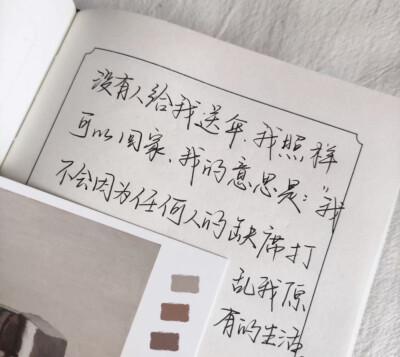 没有人给我送伞,我照样
可以回家,我的意思是:“我
不会因为任何人的缺席打
乱我原
有的生活